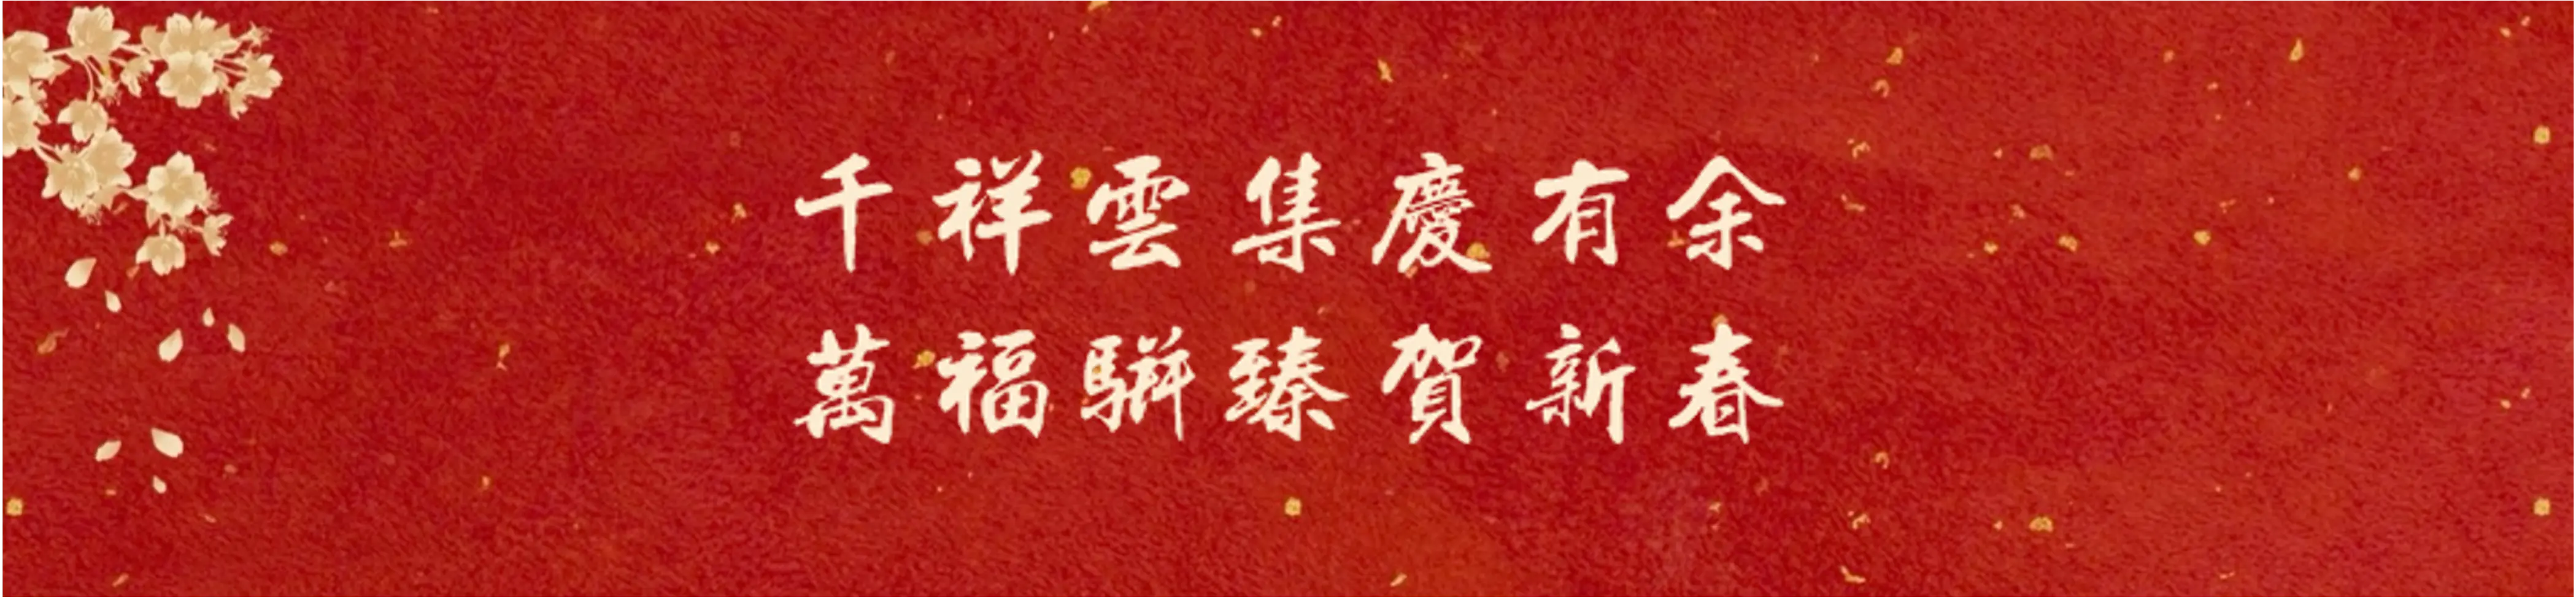 千祥雲集慶有余
萬福駢臻賀新春